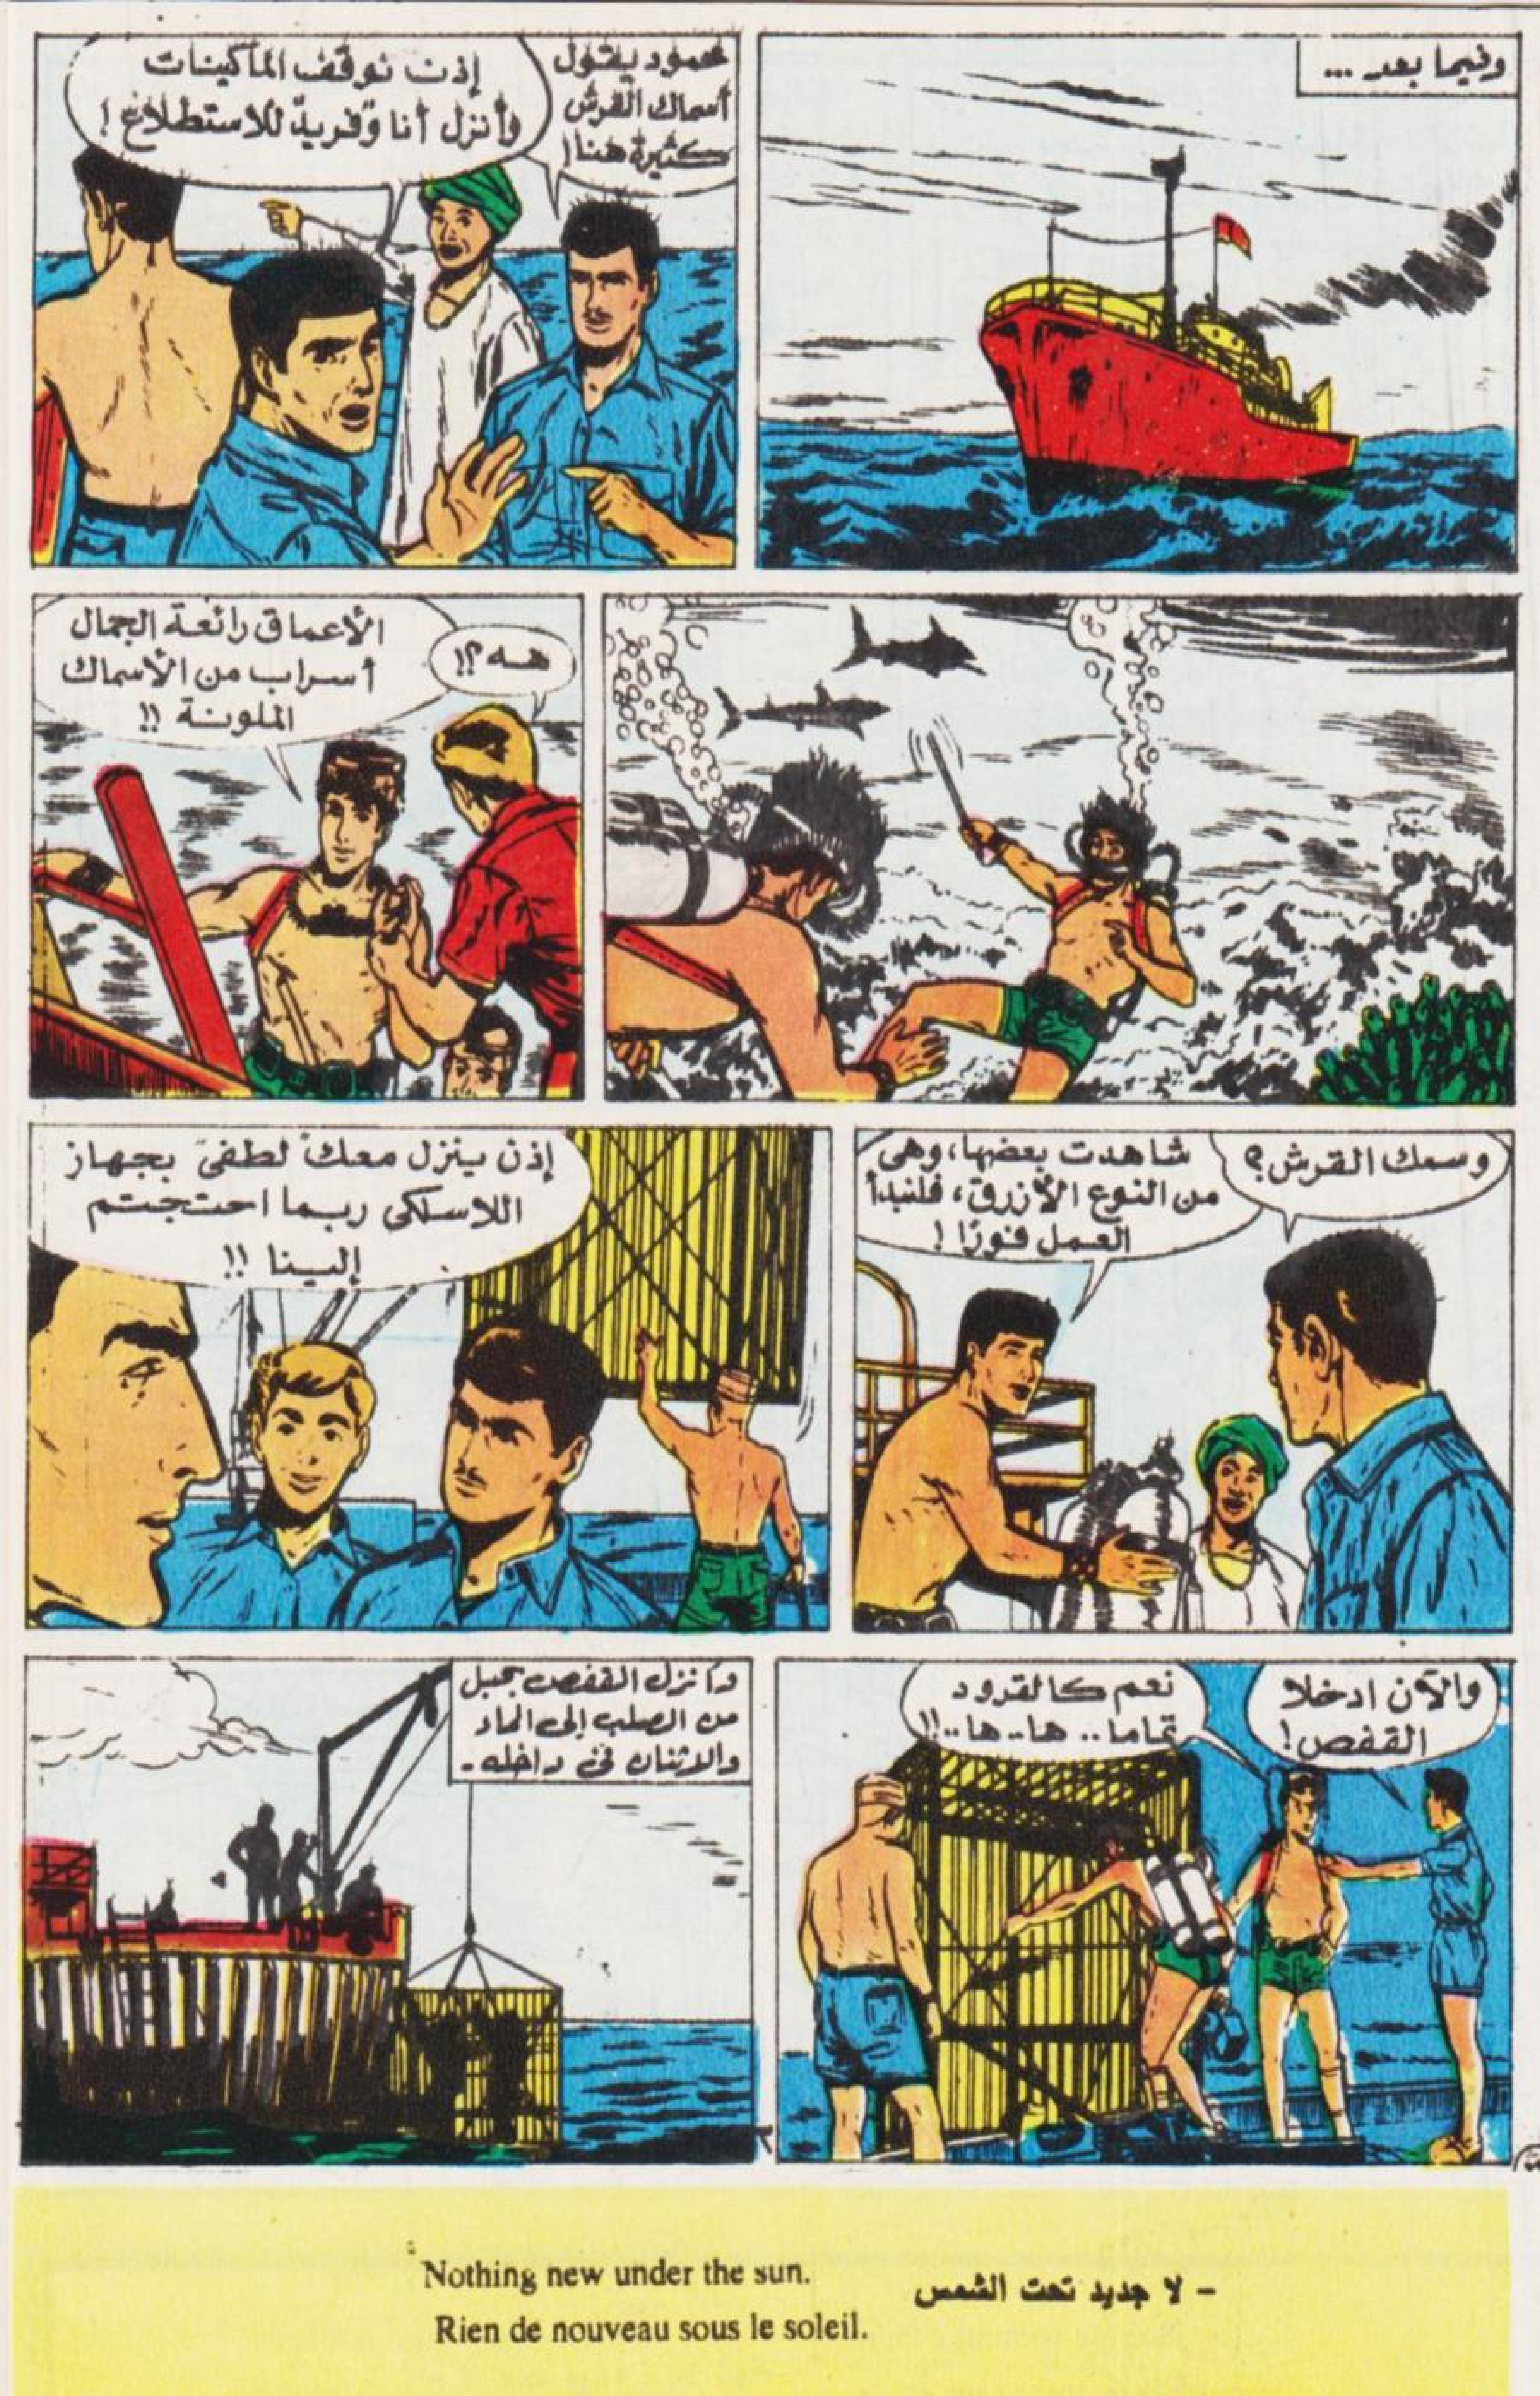 وفيما بعد ...
محمود يقول
أسماك القرش
كثيرة هنا!
إذن نوقف الماكينات
وأنزل أنا وفريد للاستطلاع!
هه؟!
الأعماق رائعة الجمال
أسراب من الأسماك
الملونة !!
وسمك القرش؟
شاهدت بعضها، وهى
من النوع الأزرق، فلنبدأ
العمل فورًا !
إذن ينزل معك لطفى بجهاز
اللاسلكى ربما احتجتم
إلينا !!
والآن ادخلا
القفص!
نعم كالقرود
تماما.. ها.. ها..!!
وأنزل القفص بحبل
من الصلب إلى الماء
والاثنان فى داخله -
Nothing new under the sun.
- لا جديد تحت الشمس
Rien de nouveau sous le soleil.